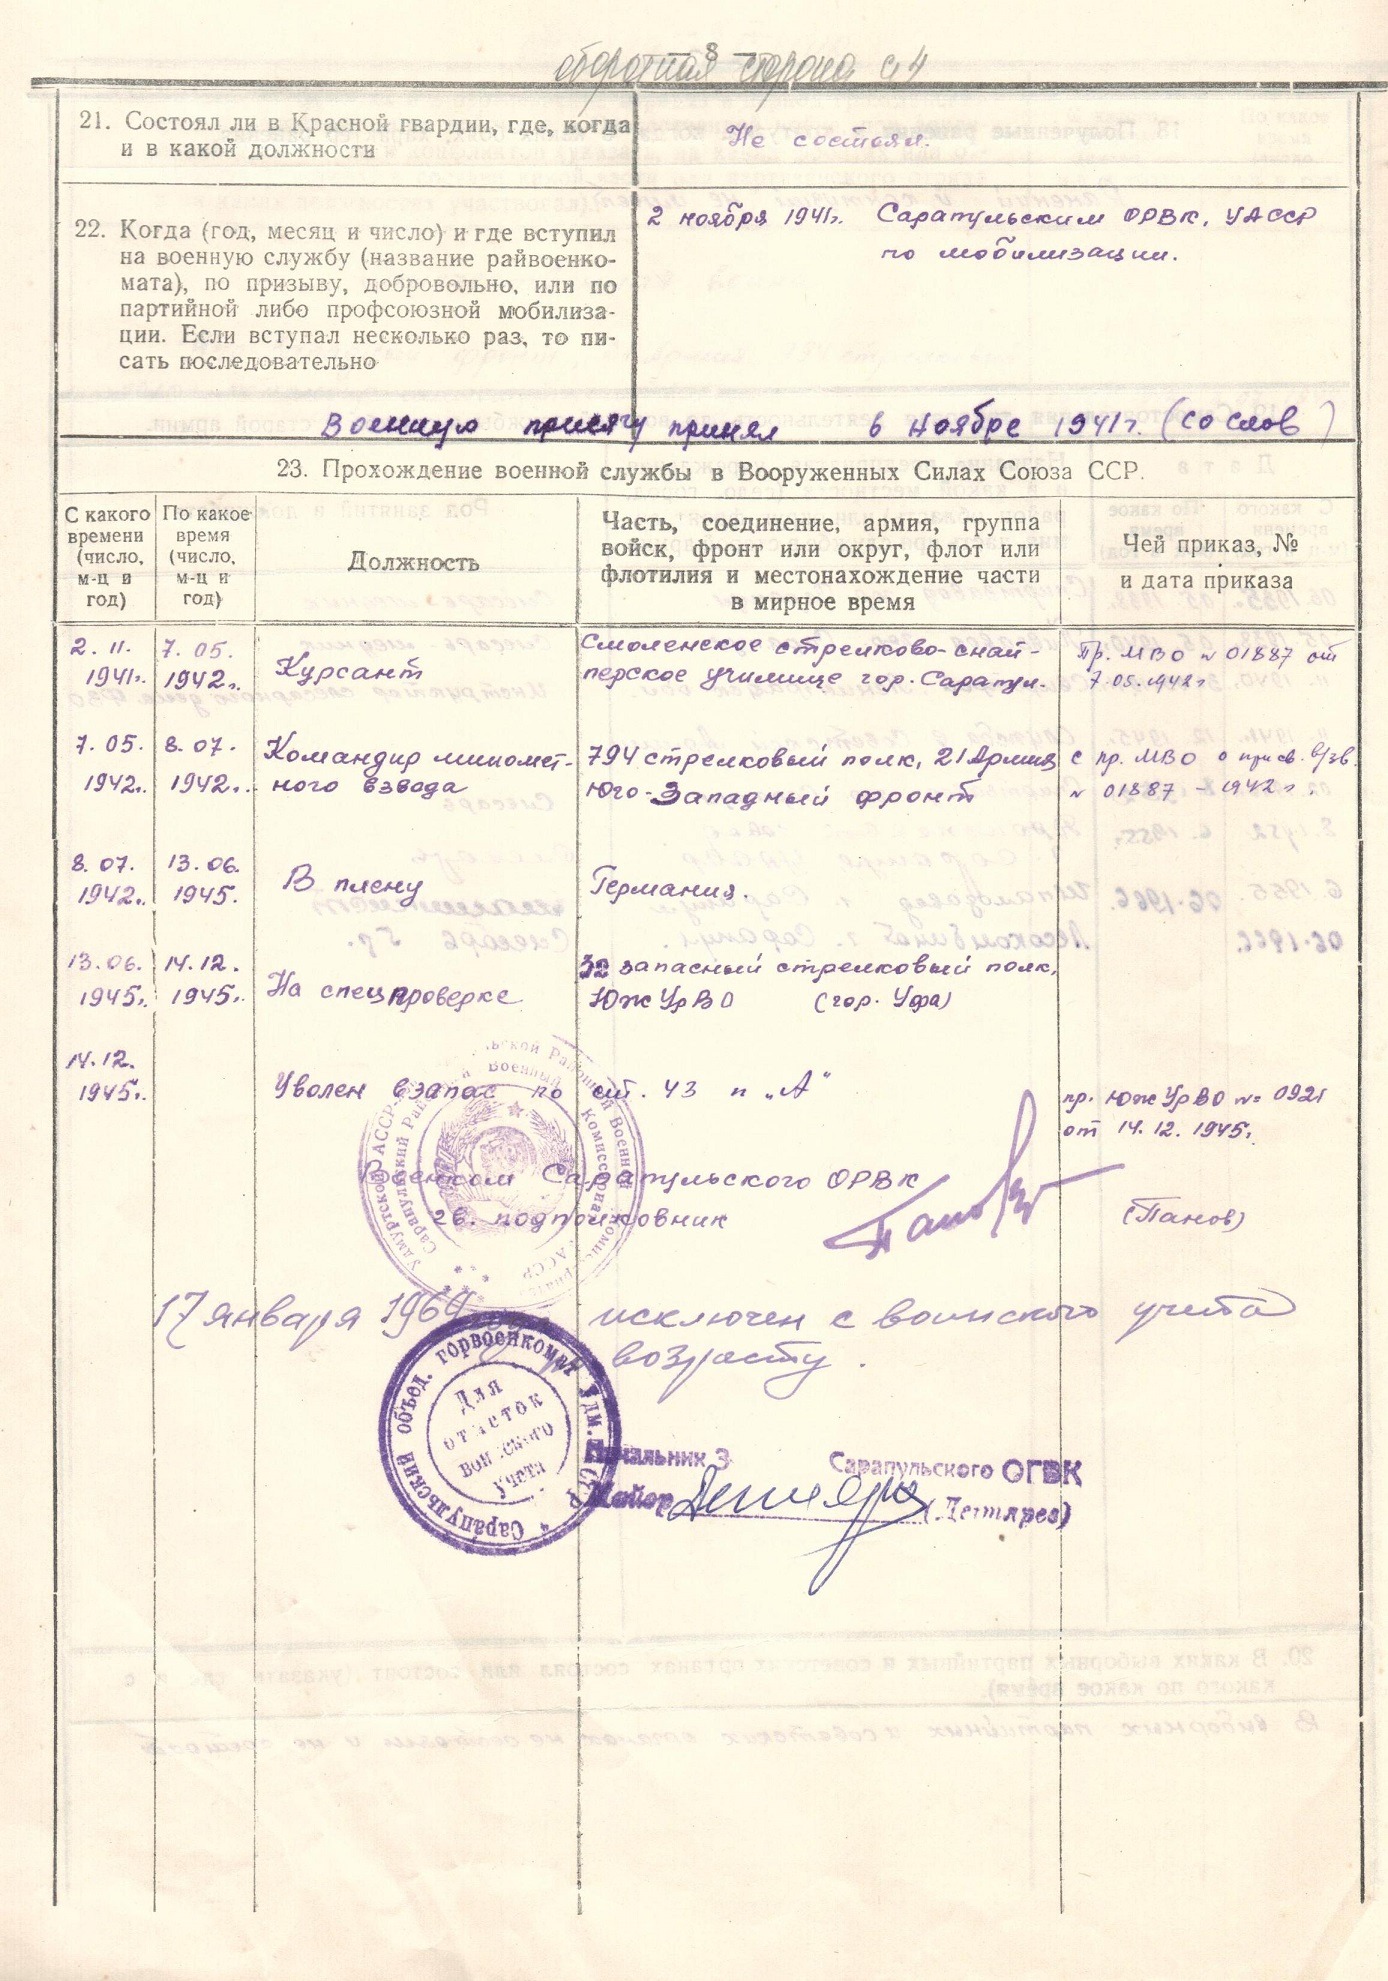 8
оборотная сторона
21. Состоял ли в Красной гвардии, где, когда
и в какой должности
Не состоял.
22. Когда (год, месяц и число) и где вступил
на военную службу (название райвоенко-
мата), по призыву, добровольно, или по
партийной либо профсоюзной мобилиза-
ции. Если вступал несколько раз, то пи-
сать последовательно
2 ноября 1941г. Сарапульским ОРВК, УАССР
по мобилизации.
Военную присягу принял 6 ноябре 1941г. (со слов)
23. Прохождение военной службы в Вооруженных Силах Союза ССР.
С какого
времени
(число,
м-ц и
год)
По какое
время
(число,
м-ц и
год)
Должность
Часть, соединение, армия, группа
войск, фронт или округ, флот или
флотилия и местонахождение части
в мирное время
Чей приказ, №
и дата приказа
2. 11.
1941г.
7. 05.
1942г.
Курсант
Смоленское стрелково-снай-
перское училище гор. Сарапул.
Пр. МВО № 01887 от
7.05.1942г
7. 05.
1942г.
8. 07.
1942г.
Командир миномет-
ного взвода
794 стрелковый полк, 21 Армия
Юго-Западный фронт
с пр. МВО о присв. в/зв.
№ 01887 - 1942г.
8. 07.
1942г.
13. 06.
1945.
В плену
Германия.
13. 06.
1945г.
14. 12.
1945г.
На спецпроверке
32 запасный стрелковый полк,
ЮжУрВО (гор. Уфа)
14. 12.
1945г.
Уволен в запас по ст. 43 п „А"
пр. ЮжУрВО № 0921
от 14. 12. 1945г.
Военком Сарапульского ОРВК
гв. подполковник
Панов
(Панов)
17 января 1964 исключен с воинского учета
возрасту.
Сарапульский объед. горвоенкомат Удм. АССР
Для
отметок
воинского
учета
Начальник 3
Сарапульского ОГВК
Майор
(Дегтярев)
20. В каких выборных партийных и советских органах состоял или состоит (указать где и с
какого по какое время).